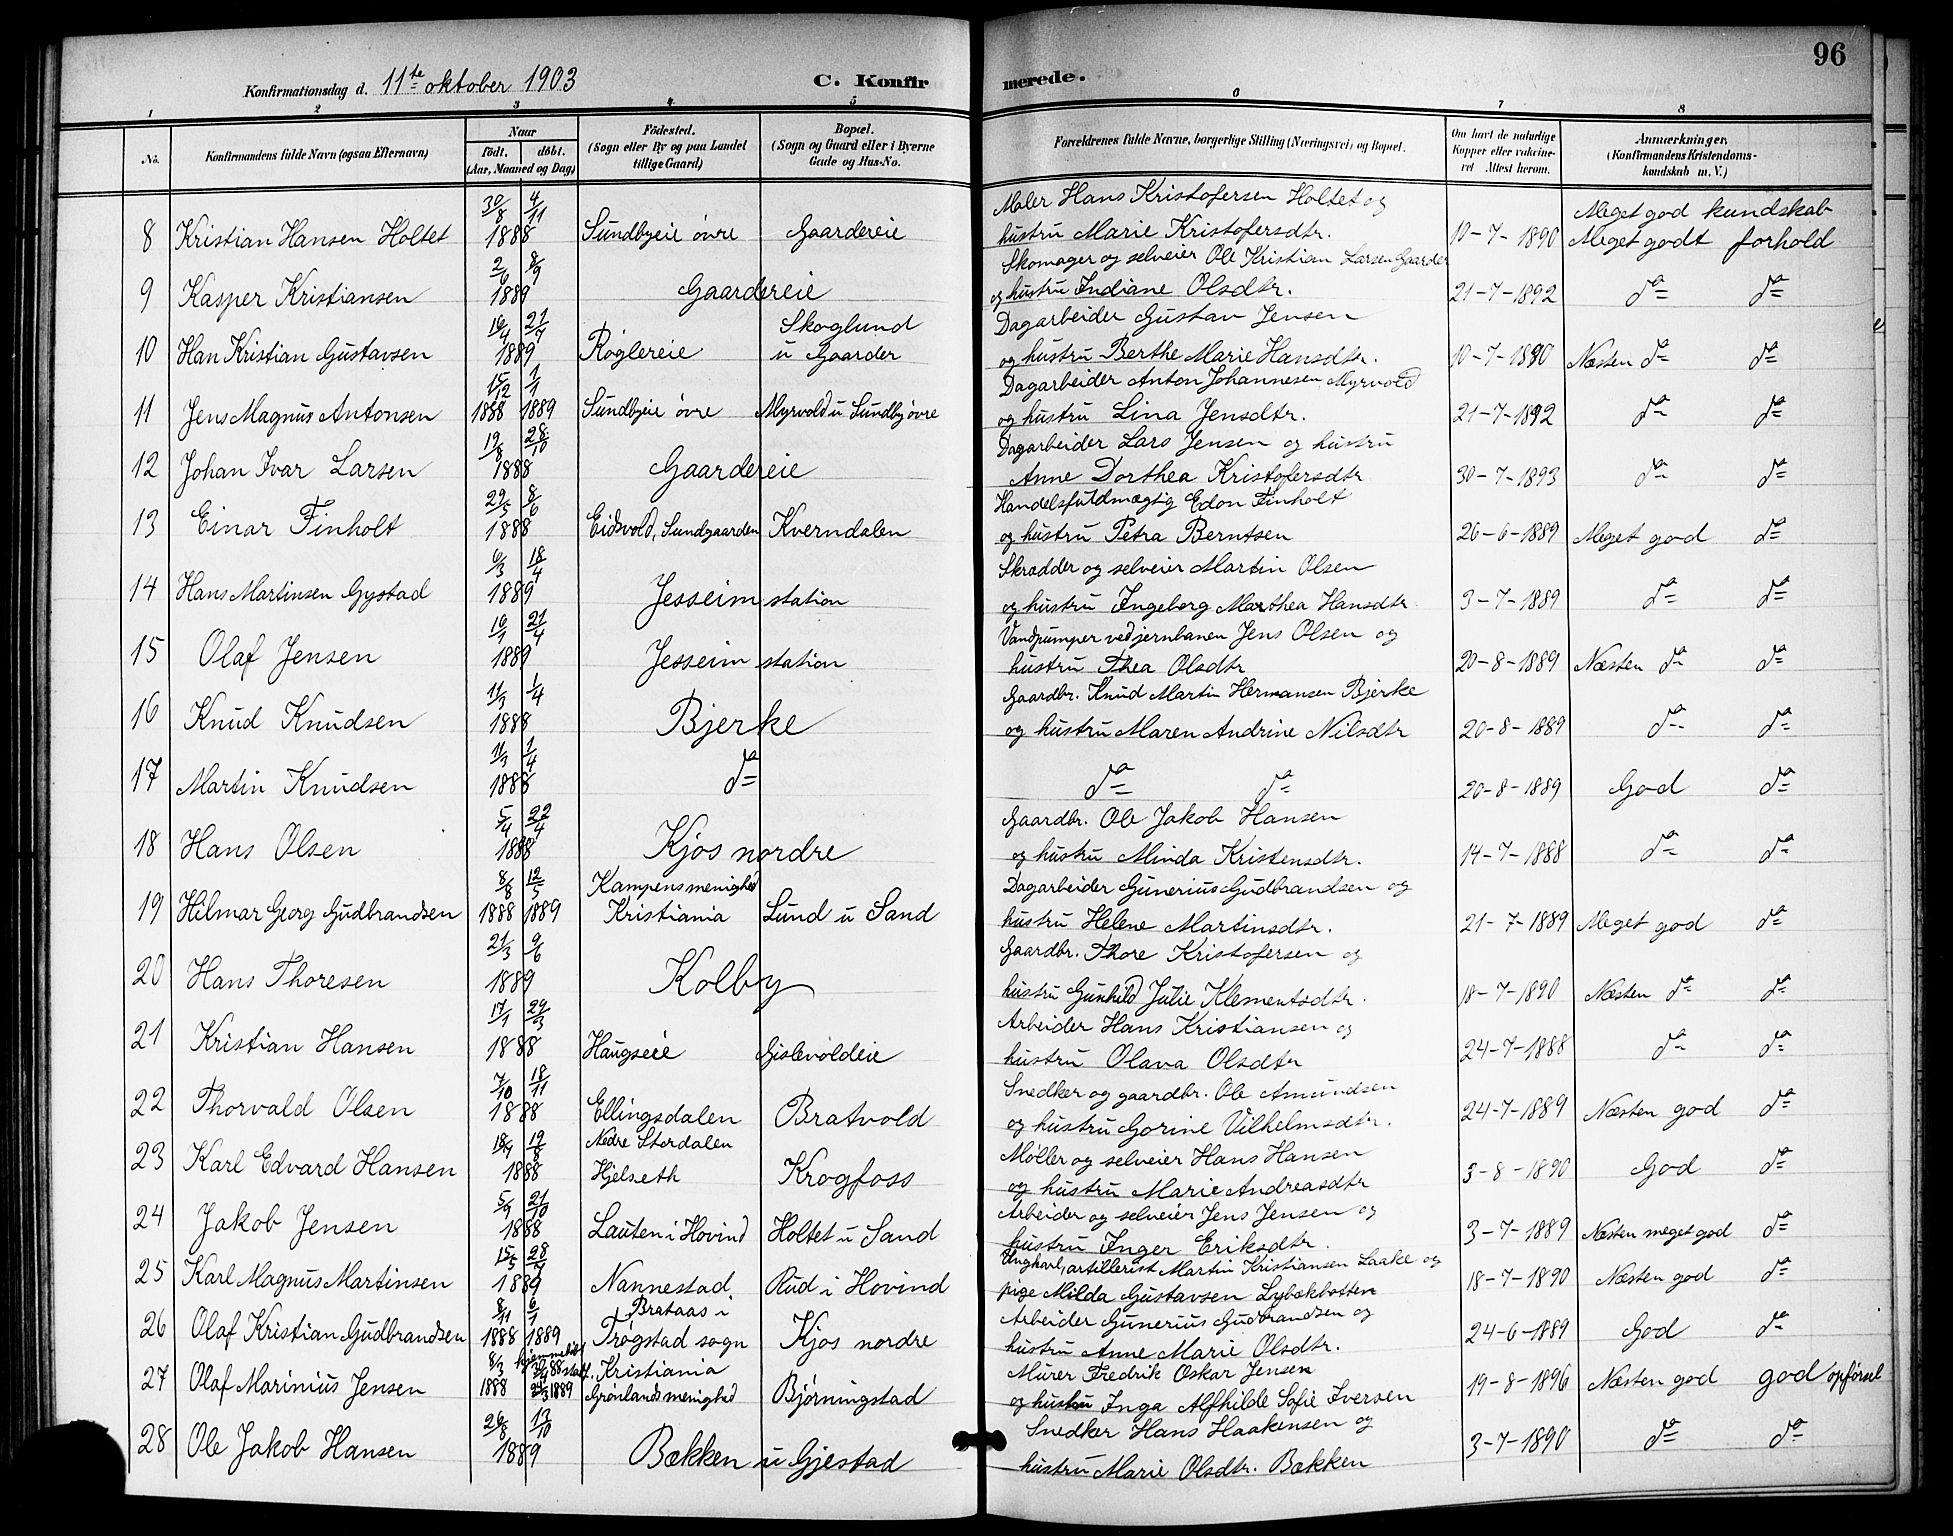 96
Konfirmationsdag d. 11te oktober 1903 C. Konfirmerede.
1 2 3 4 5 6 7 8
No. Konfirmandens fulde Navn (ogsaa Efternavn) Naar født. døbt. (Aar, Maaned og Dag) Fødested. (Sogn eller By og paa Landet tillige Gaard) Bopæl. (Sogn og Gaard eller i Byerne Gade og Hus-No. Forældrenes fulde Navne, borgerlige Stilling (Næringsvei) og Bopæl. Om havt de naturlige Kopper eller vakcineret Attest herom. Anmærkninger. (Konfirmandens Kristendomskundskab m. V.)
8 Kristian Hansen Holtet 30/8 4/11 1888 Sundbyeie øvre Gaardereie Maler Hans Kristofersen Holtet og hustru Marie Kristofersdtr. 10-7-1890 Meget god kundskab Meget godt forhold
9 Kasper Kristiansen 2/6 8/9 1889 Gaardereie Skomager og selveier Ole Kristian Larsen Gaarder og hustru Indiane Olsdtr. 21-7-1892 da da
10 Han Kristian Gustavsen 16/4 21/7 1889 Røglereie Skoglund u Gaarder Dagarbeider Gustav Jensen og hustru Berthe Marie Hansdtr. 10-7-1890 Næsten da da
11 Jens Magnus Antonsen 15/12 1888 1/1 1889 Sundbyeie øvre Myrvold u Sundby øvre Dagarbeider Anton Johannesen Myrvold og hustru Lina Jensdtr. 21-7-1892 da da
12 Johan Ivar Larsen 19/8 28/10 1888 Gaardereie Dagarbeider Lars Jensen og hustru Anne Dorthea Kristofersdtr 30-7-1893 da da
13 Einar Finholt 29/5 8/6 1888 Eidsvold, Sundgaarden Kverndalen Handelsfuldmægtig Edon Finholt og hustru Petra Berntsen 26-6-1889 Meget god da
14 Hans Martinsen Gystad 6/3 18/4 1889 Jesseim station Skrædder og selveier Martin Olsen og hustru Ingeborg Marthea Hansdtr 3-7-1889 da da
15 Olaf Jensen 16/1 21/4 1889 Jesseim station Vandpumper ved jernbanen Jens Olsen og hustru Thea Olsdtr 20-8-1889 Næsten da da
16 Knud Knudsen 11/3 1/4 1888 Bjerke Gaardbr. Knud Martin Hermansen Bjerke og hustru Maren Andrine Nilsdtr 20-8-1889 da da
17 Martin Knudsen 11/3 1/4 1888 da da da 20-8-1889 God da
18 Hans Olsen 5/4 22/4 1888 Kjos nordre Gaardbr. Ole Jakob Hansen og hustru Minda Kristensdtr. 14-7-1888 da da
19 Hilmar Georg Gudbrandsen 8/8 1888 12/5 1889 Kampens menighed Kristiania Lund u Sand Dagarbeider Gunerius Gudbrandsen og hustru Helene Martinsdtr. 21-7-1889 Meget god da
20 Hans Thoresen 21/3 9/6 1889 Kolby Gaardbr. Thore Kristofersen og hustru Gunhild Julie Klementsdtr. 18-7-1890 Næsten da da
21 Kristian Hansen 17/1 29/3 1888 Haugseie Gislevoldeie Arbeider Hans Kristiansen og hustru Olava Olsdtr 24-7-1888 da da
22 Thorvald Olsen 7/10 18/11 1888 Ellingsdalen Bratvold Snedker og gaardbr. Ole Amundsen og hustru Gorine Vilhelmsdtr. 24-7-1889 Næsten god da
23 Karl Edvard Hansen 18/7 19/8 1888 Nedre Stordalen Hjelseth Krogfoss Møller og selveier Hans Hansen og hustru Marie Andreasdtr 3-8-1890 God da
24 Jakob Jensen 5/9 21/10 1888 Lauten i Hovind Holtet u Sand Arbeider og selveier Jens Jensen og hustru Inger Eriksdtr. 3-7-1889 Næsten meget god da
25 Karl Magnus Martinsen 15/5 28/7 1889 Nannestad Rud i Hovind Ungkarl, artillerist Martin Kristiansen Laake og pige Milda Gustavsen Lybækbotten 18-7-1890 Næsten god da
26 Olaf Kristian Gudbrandsen 8/11 1888 6/1 1889 Brataas i Trøgstad sogn Kjos nordre Arbeider Gunerius Gudbrandsen og hustru Anne Marie Olsdtr. 24-6-1889 God da
27 Olaf Marinius Jensen 8/3 1888 hjemmedøbt stadf. 1889 Kristiania Grønlands menighed Bjørningstad Murer Fredrik Oskar Jensen og hustru Inga Alfhilde Sofie Iversen 19-8-1896 Næsten god god opførsel
28 Ole Jakob Hansen 26/8 13/10 1889 Bækken u Gjestad Snedker Hans Haakensen og hustru Marie Olsdtr. Bækken 3-7-1890 da da